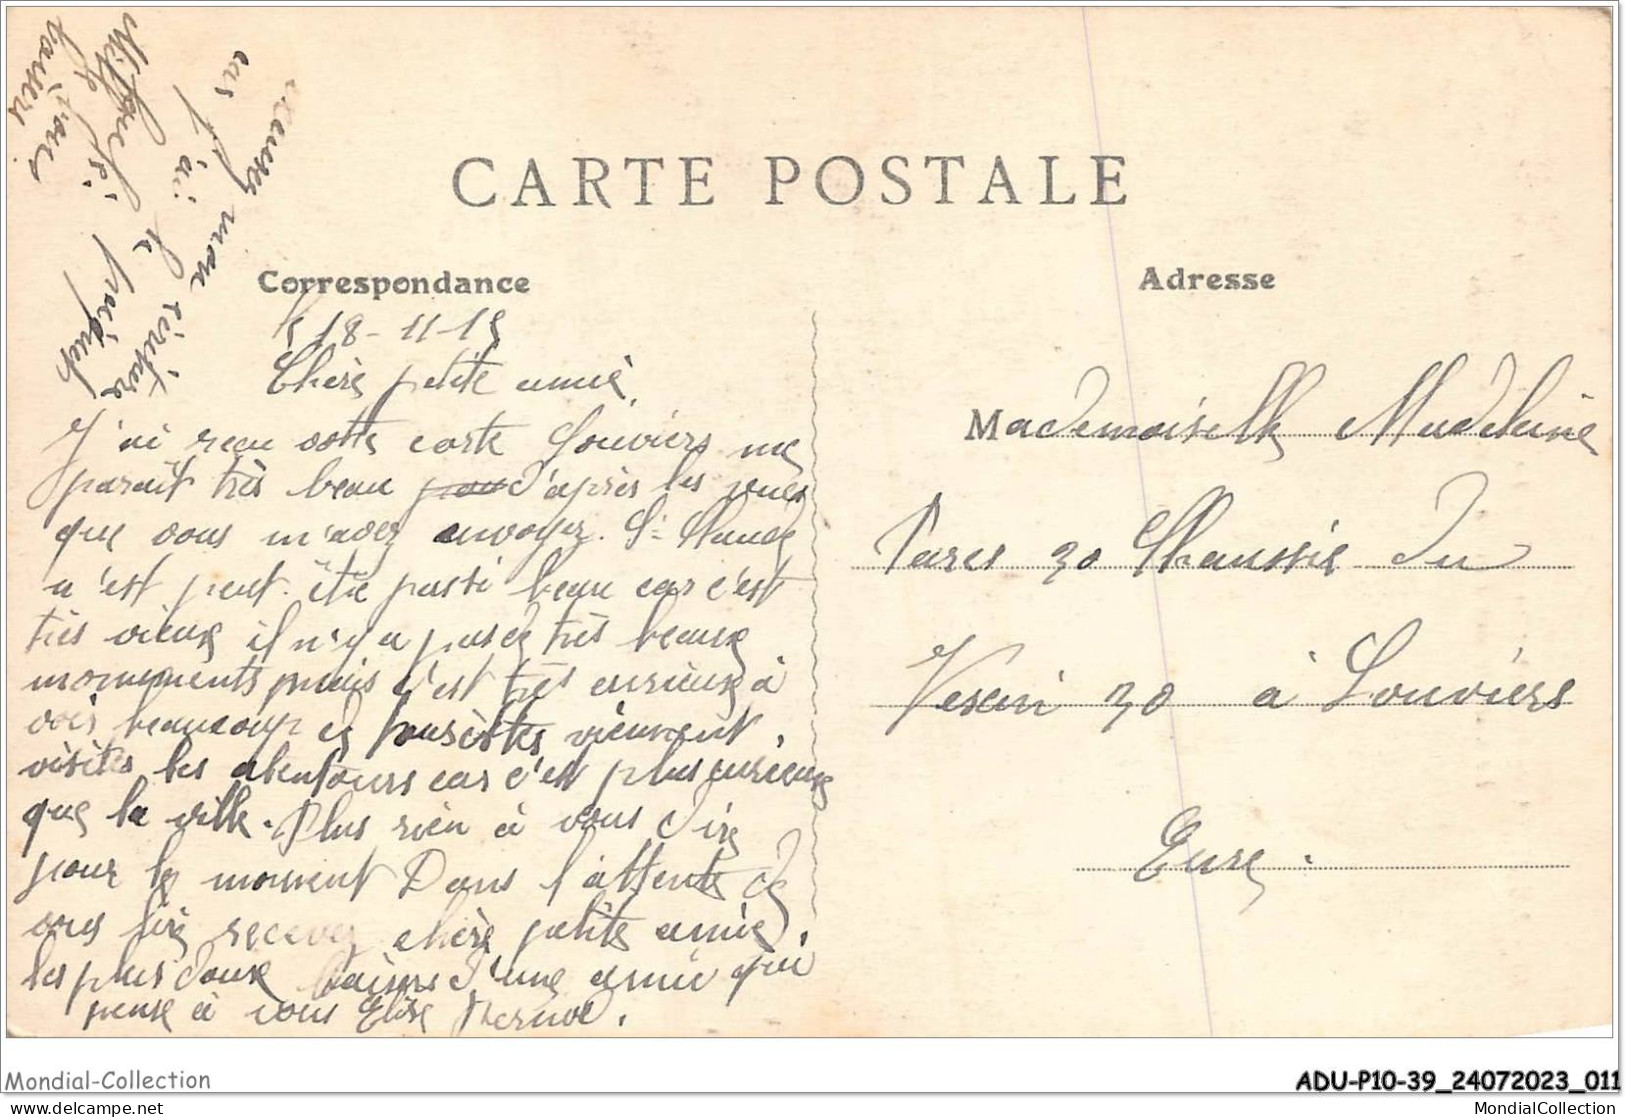 CARTE POSTALE
Correspondance
Adresse
18-11-15
Chère petite amie
J'ai reçu votre carte Louviers me
parait très beau d'après les vues
que vous m'avez envoyez. St Claude
n'est peut-être pas si beau car c'est
très vieux il n'y a pas de très beaux
monuments mais c'est très curieux à
voir beaucoup de touristes viennent
visites les alentours car c'est plus curieux
que la ville. Plus rien à vous dire
pour le moment Dans l'attente de
vous lire recevez chère petite amie,
les plus doux baisers d'une amie qui
pense à vous Elise
Excusez mon écriture
car j'ai le poignet
baisers
Mademoiselle Madeleine
30 Chaussée du
Vexin 30 à Louviers
Eure.
Mondial-Collection
ADU-P10-39_24072023_011
www.delcampe.net
MondialCollection